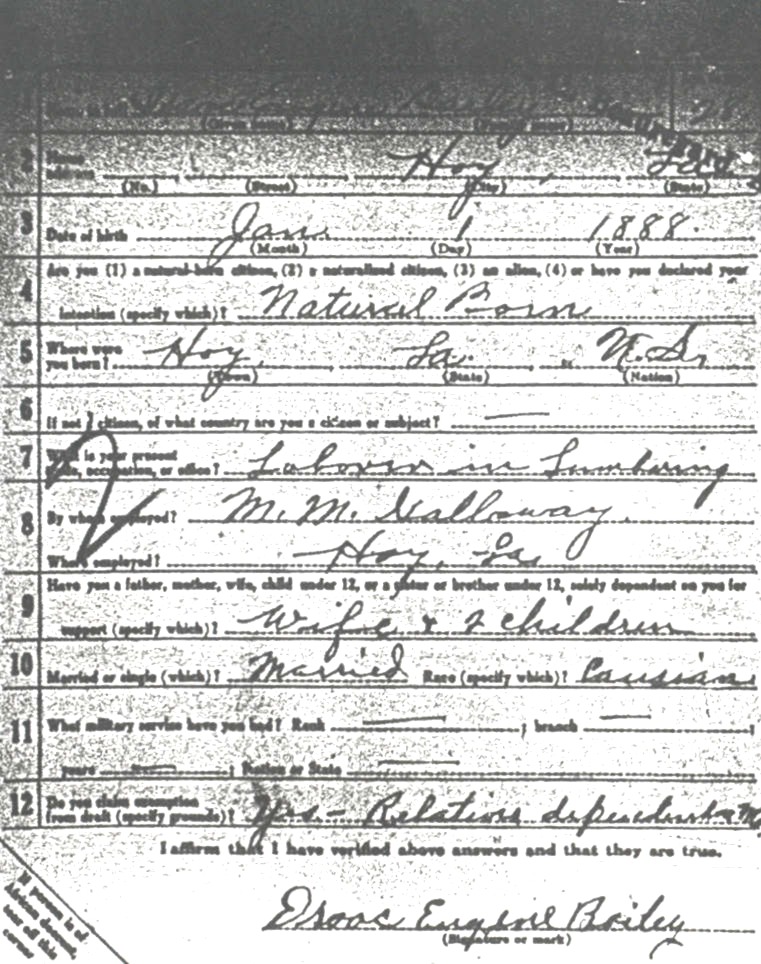 1 Isaac Eugene Bailey 28
(Given name) (Family name) Beauregard
2 Home address Hoy La.
(No.) (Street) (City) (State)
3 Date of birth Jan. 1 1888.
(Month) (Day) (Year)
Are you (1) a natural-born citizen, (2) a naturalized citizen, (3) an alien, (4) or have you declared your
4 intention (specify which)? Natural Born
5 Where were you born? Hoy La. or U.S.
(Town) (State) (Nation)
6 If not a citizen, of what country are you a citizen or subject?
7 What is your present trade, occupation, or office? Laborer in Lumbering
8 By whom employed? M. M. Galloway
Where employed? Hoy, La
Have you a father, mother, wife, child under 12, or a sister or brother under 12, solely dependent on you for
9 support (specify which)? Wife & 2 children
10 Married or single (which)? Married Race (specify which)? Causian
11 What military service have you had? Rank ; branch ;
years ; Nation or State
12 Do you claim exemption from draft (specify grounds)? Yes - Relation dependent
I affirm that I have verified above answers and that they are true.
Isaac Eugene Bailey
(Signature or mark)
If person is of
African descent,
tear off this
corner